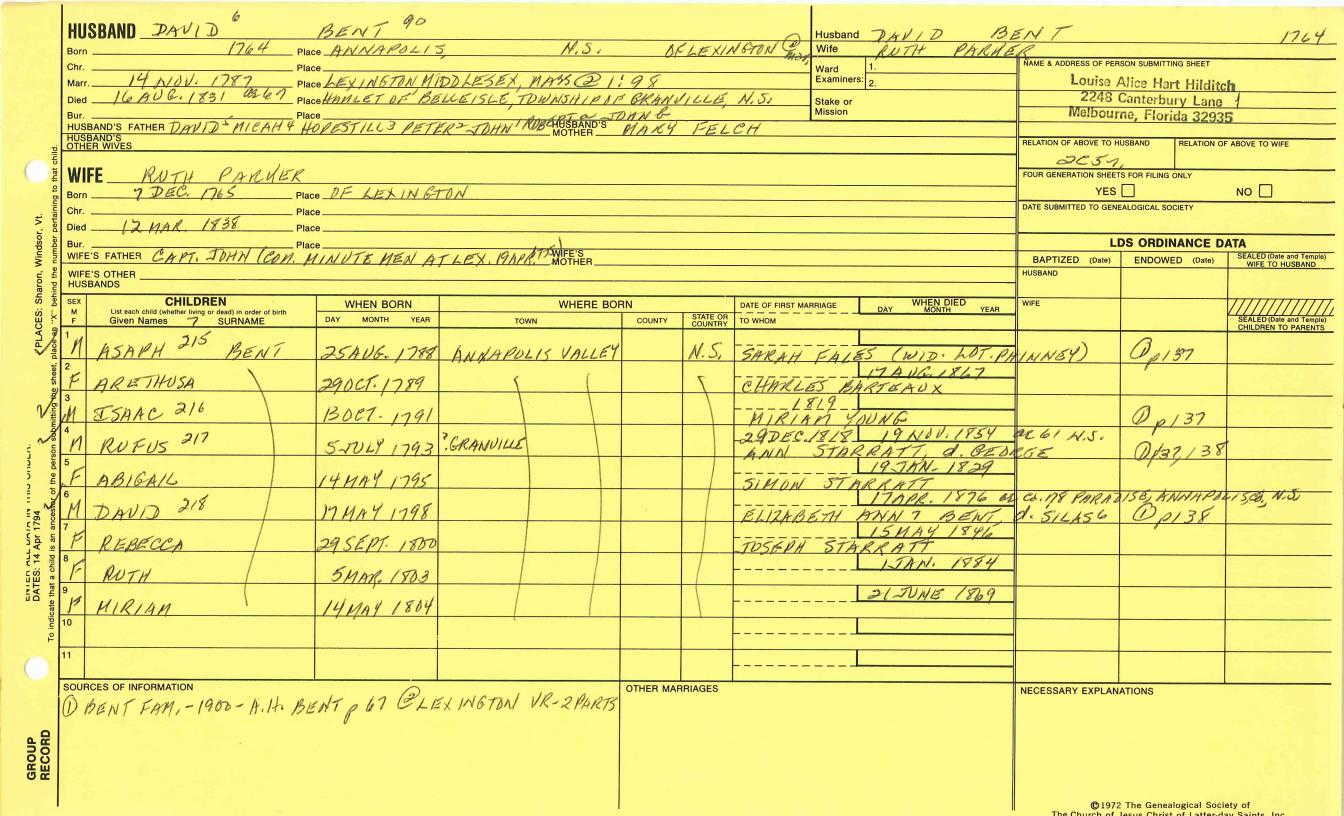 HUSBAND DAVID 6 BENT 90
Born 1764 Place ANNAPOLIS, N.S. OF LEXINGTON ② MASS,
Chr. Place
Marr. 14 NOV. 1787 Place LEXINGTON MIDDLESEX, MASS ② 1:98
Died 16 AUG. 1831 ae 67 Place HAMLET OF BELLEISLE, TOWNSHIP OF GRANVILLE, N.S.
Bur. Place
HUSBAND'S FATHER DAVID 5 MICAH 4 HOPESTILL 3 PETER 2 JOHN 1 ROBERT a JOHN G HUSBAND'S MOTHER MARY FELCH
HUSBAND'S OTHER WIVES
Husband DAVID BENT 1764
Wife RUTH PARKER
Ward Examiners: 1.
2.
Stake or Mission
NAME & ADDRESS OF PERSON SUBMITTING SHEET
Louise Alice Hart Hilditch
2248 Canterbury Lane
Melbourne, Florida 32935
RELATION OF ABOVE TO HUSBAND RELATION OF ABOVE TO WIFE
2C5r,
FOUR GENERATION SHEETS FOR FILING ONLY
YES NO
DATE SUBMITTED TO GENEALOGICAL SOCIETY
WIFE RUTH PARKER
Born 7 DEC. 1765 Place OF LEXINGTON
Chr. Place
Died 12 MAR. 1838 Place
Bur. Place
WIFE'S FATHER CAPT. JOHN (COM. MINUTE MEN AT LEX. 19 APR. 1775) WIFE'S MOTHER
WIFE'S OTHER HUSBANDS
LDS ORDINANCE DATA
BAPTIZED (Date) ENDOWED (Date) SEALED (Date and Temple) WIFE TO HUSBAND
HUSBAND
WIFE
SEALED (Date and Temple) CHILDREN TO PARENTS
SEX M F CHILDREN WHEN BORN WHERE BORN DATE OF FIRST MARRIAGE WHEN DIED
List each child (whether living or dead) in order of birth
Given Names 7 SURNAME DAY MONTH YEAR TOWN COUNTY STATE OR COUNTRY TO WHOM DAY MONTH YEAR
1 M ASAPH 215 BENT 25 AUG. 1788 ANNAPOLIS VALLEY N.S. SARAH FALES (WID. LOT. PHINNEY) ① p137
2 F ARETHUSA 29 OCT. 1789 17 AUG. 1867 CHARLES BARTEAUX
3 M ISAAC 216 13 OCT. 1791 1819 MIRIAM YOUNG ① p137
4 M RUFUS 217 5 JULY 1793 ?GRANVILLE 29 DEC. 1818 19 NOV. 1854 ae 61 N.S. ANN STARRATT, d. GEORGE ① p137, 138
5 F ABIGAIL 14 MAY 1795 19 JAN. 1829 SIMON STARRATT
6 M DAVID 218 17 MAY 1798 17 APR. 1876 ae ca. 78 PARADISE, ANNAPOLIS, Co, N.S. ELIZABETH ANN 7 BENT, d. SILAS 6 ① p138
7 F REBECCA 29 SEPT. 1800 15 MAY 1846 JOSEPH STARRATT
8 F RUTH 5 MAR. 1803 1 JAN. 1884
9 F MIRIAM 14 MAY 1804 21 JUNE 1869
10
11
SOURCES OF INFORMATION
① BENT FAM, - 1900 - A.H. BENT p 67 ② LEXINGTON VR - 2 PARTS
OTHER MARRIAGES
NECESSARY EXPLANATIONS
©1972 The Genealogical Society of
The Church of Jesus Christ of Latter-day Saints, Inc.
GROUP RECORD
ENTER ALL DATA IN THIS ORDER:
DATES: 14 Apr 1794
PLACES: Sharon, Windsor, Vt.
To indicate that a child is an ancestor of the person submitting the sheet, place an "X" behind the number pertaining to that child.